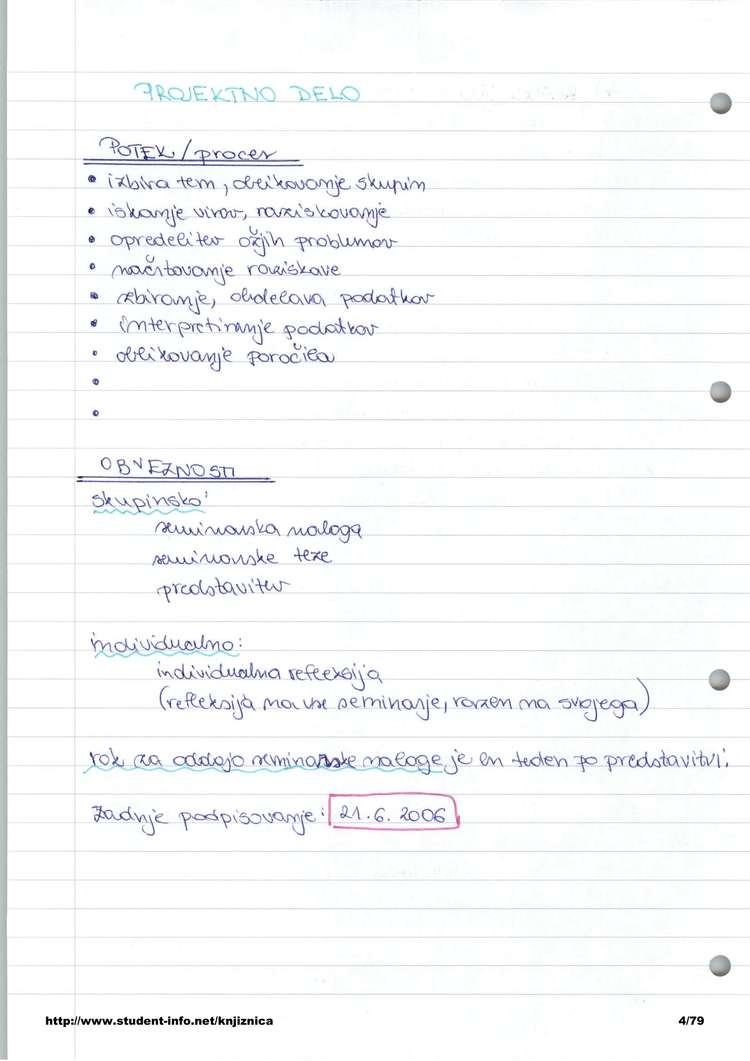 PROJEKTNO DELO
POTEK / proces
• izbira tem, oblikovanje skupin
• iskanje virov, raziskovanje
• opredelitev ožjih problemov
• načrtovanje raziskave
• zbiranje, obdelava podatkov
• interpretiranje podatkov
• oblikovanje poročila
•
•
OBVEZNOSTI
skupinsko:
seminarska naloga
seminarske teze
predstavitev
individualno:
individualna refleksija
(refleksija na vse seminarje, razen na svojega)
rok za oddajo seminarske naloge je en teden po predstavitvi.
zadnje podpisovanje: 21.6.2006
http://www.student-info.net/knjiznica 4/79